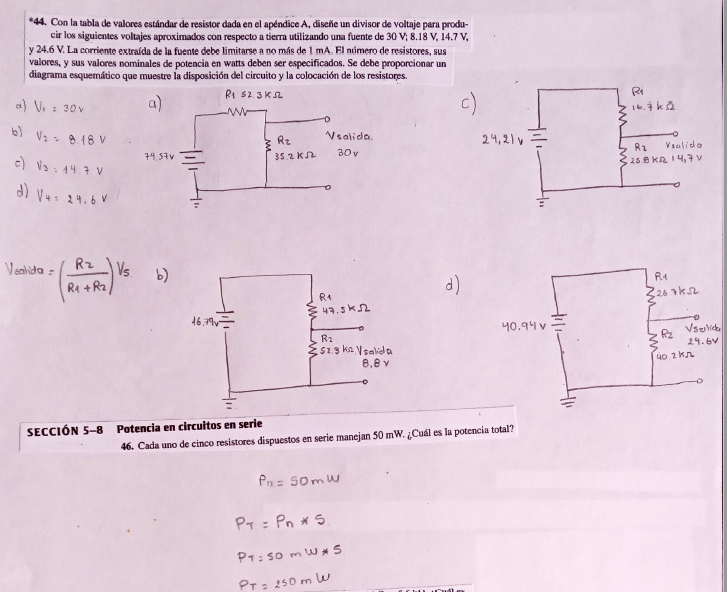 *44. Con la tabla de valores estándar de resistor dada en el apéndice A, diseñe un divisor de voltaje para produ-
cir los siguientes voltajes aproximados con respecto a tierra utilizando una fuente de 30 V; 8.18 V, 14.7 V,
y 24.6 V. La corriente extraída de la fuente debe limitarse a no más de 1 mA. El número de resistores, sus
valores, y sus valores nominales de potencia en watts deben ser especificados. Se debe proporcionar un
diagrama esquemático que muestre la disposición del circuito y la colocación de los resistores.
a) V1 = 30v
b) V2 = 8.18 V
c) V3 = 14.7 V
d) V4 = 24.6 V
a)
R1 52.3KΩ
74,57v
R2
35.2KΩ
Vsalida.
30v
c)
24,21v
R1
16.7kΩ
R2 Vsalida
25.8KΩ 14,7V
Vsalida = (R2 / R1 + R2) Vs
b)
16.79v
R1
47.5KΩ
R2
52.3 KΩ Vsalida
8,8 v
d)
40.94 v
R1
26.7KΩ
R2 Vsalida
24.6v
40.2KΩ
SECCIÓN 5–8 Potencia en circuitos en serie
46. Cada uno de cinco resistores dispuestos en serie manejan 50 mW. ¿Cuál es la potencia total?
Pn = 50mW
PT = Pn * 5.
PT = 50 mW * 5
PT = 250 mW